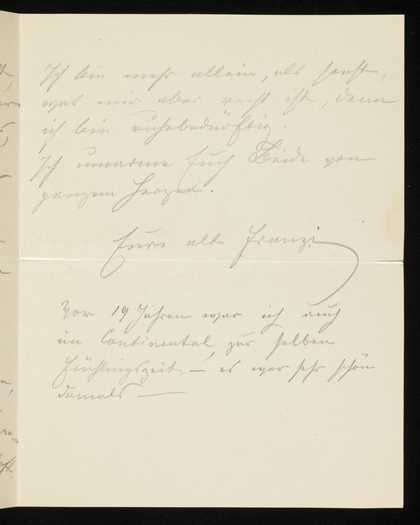 Ich bin mehr allein, als sonst,
was mir aber recht ist, denn
ich bin ruhebedürftig.
Ich umarme Euch Beide von
ganzem Herzen.
Eure alte Franzi
Vor 19 Jahren war ich auch
im Continental, zur selben
Frühlingszeit – es war sehr schön
damals –